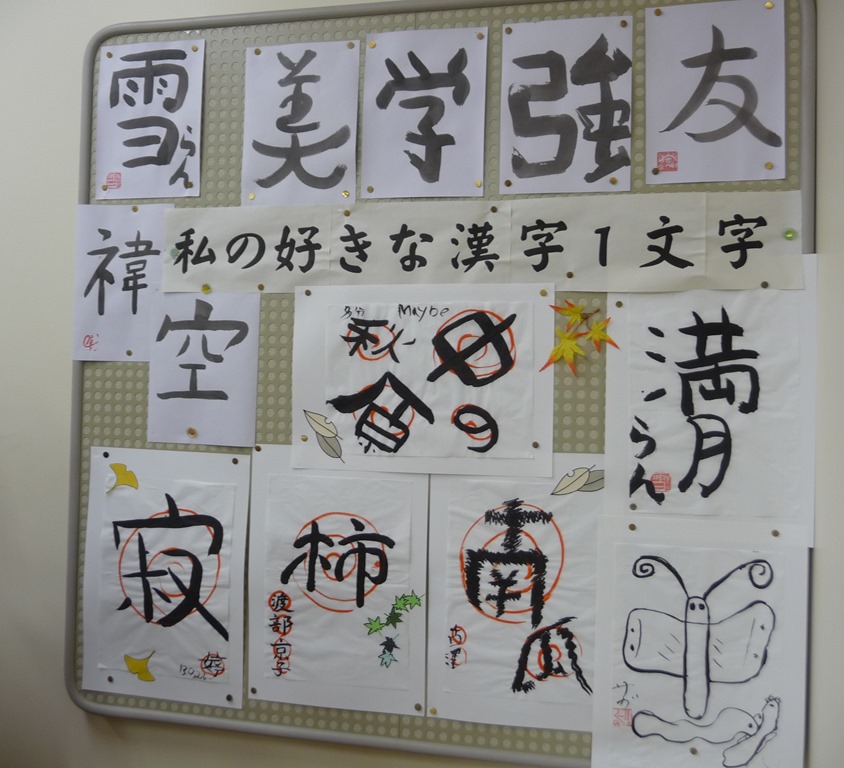 雪
らん
美
学
強
友
私の好きな漢字1文字
禕
空
多分 Maybe
母の
秋
満月
らん
寂
婷
柿
渡部京子
南風